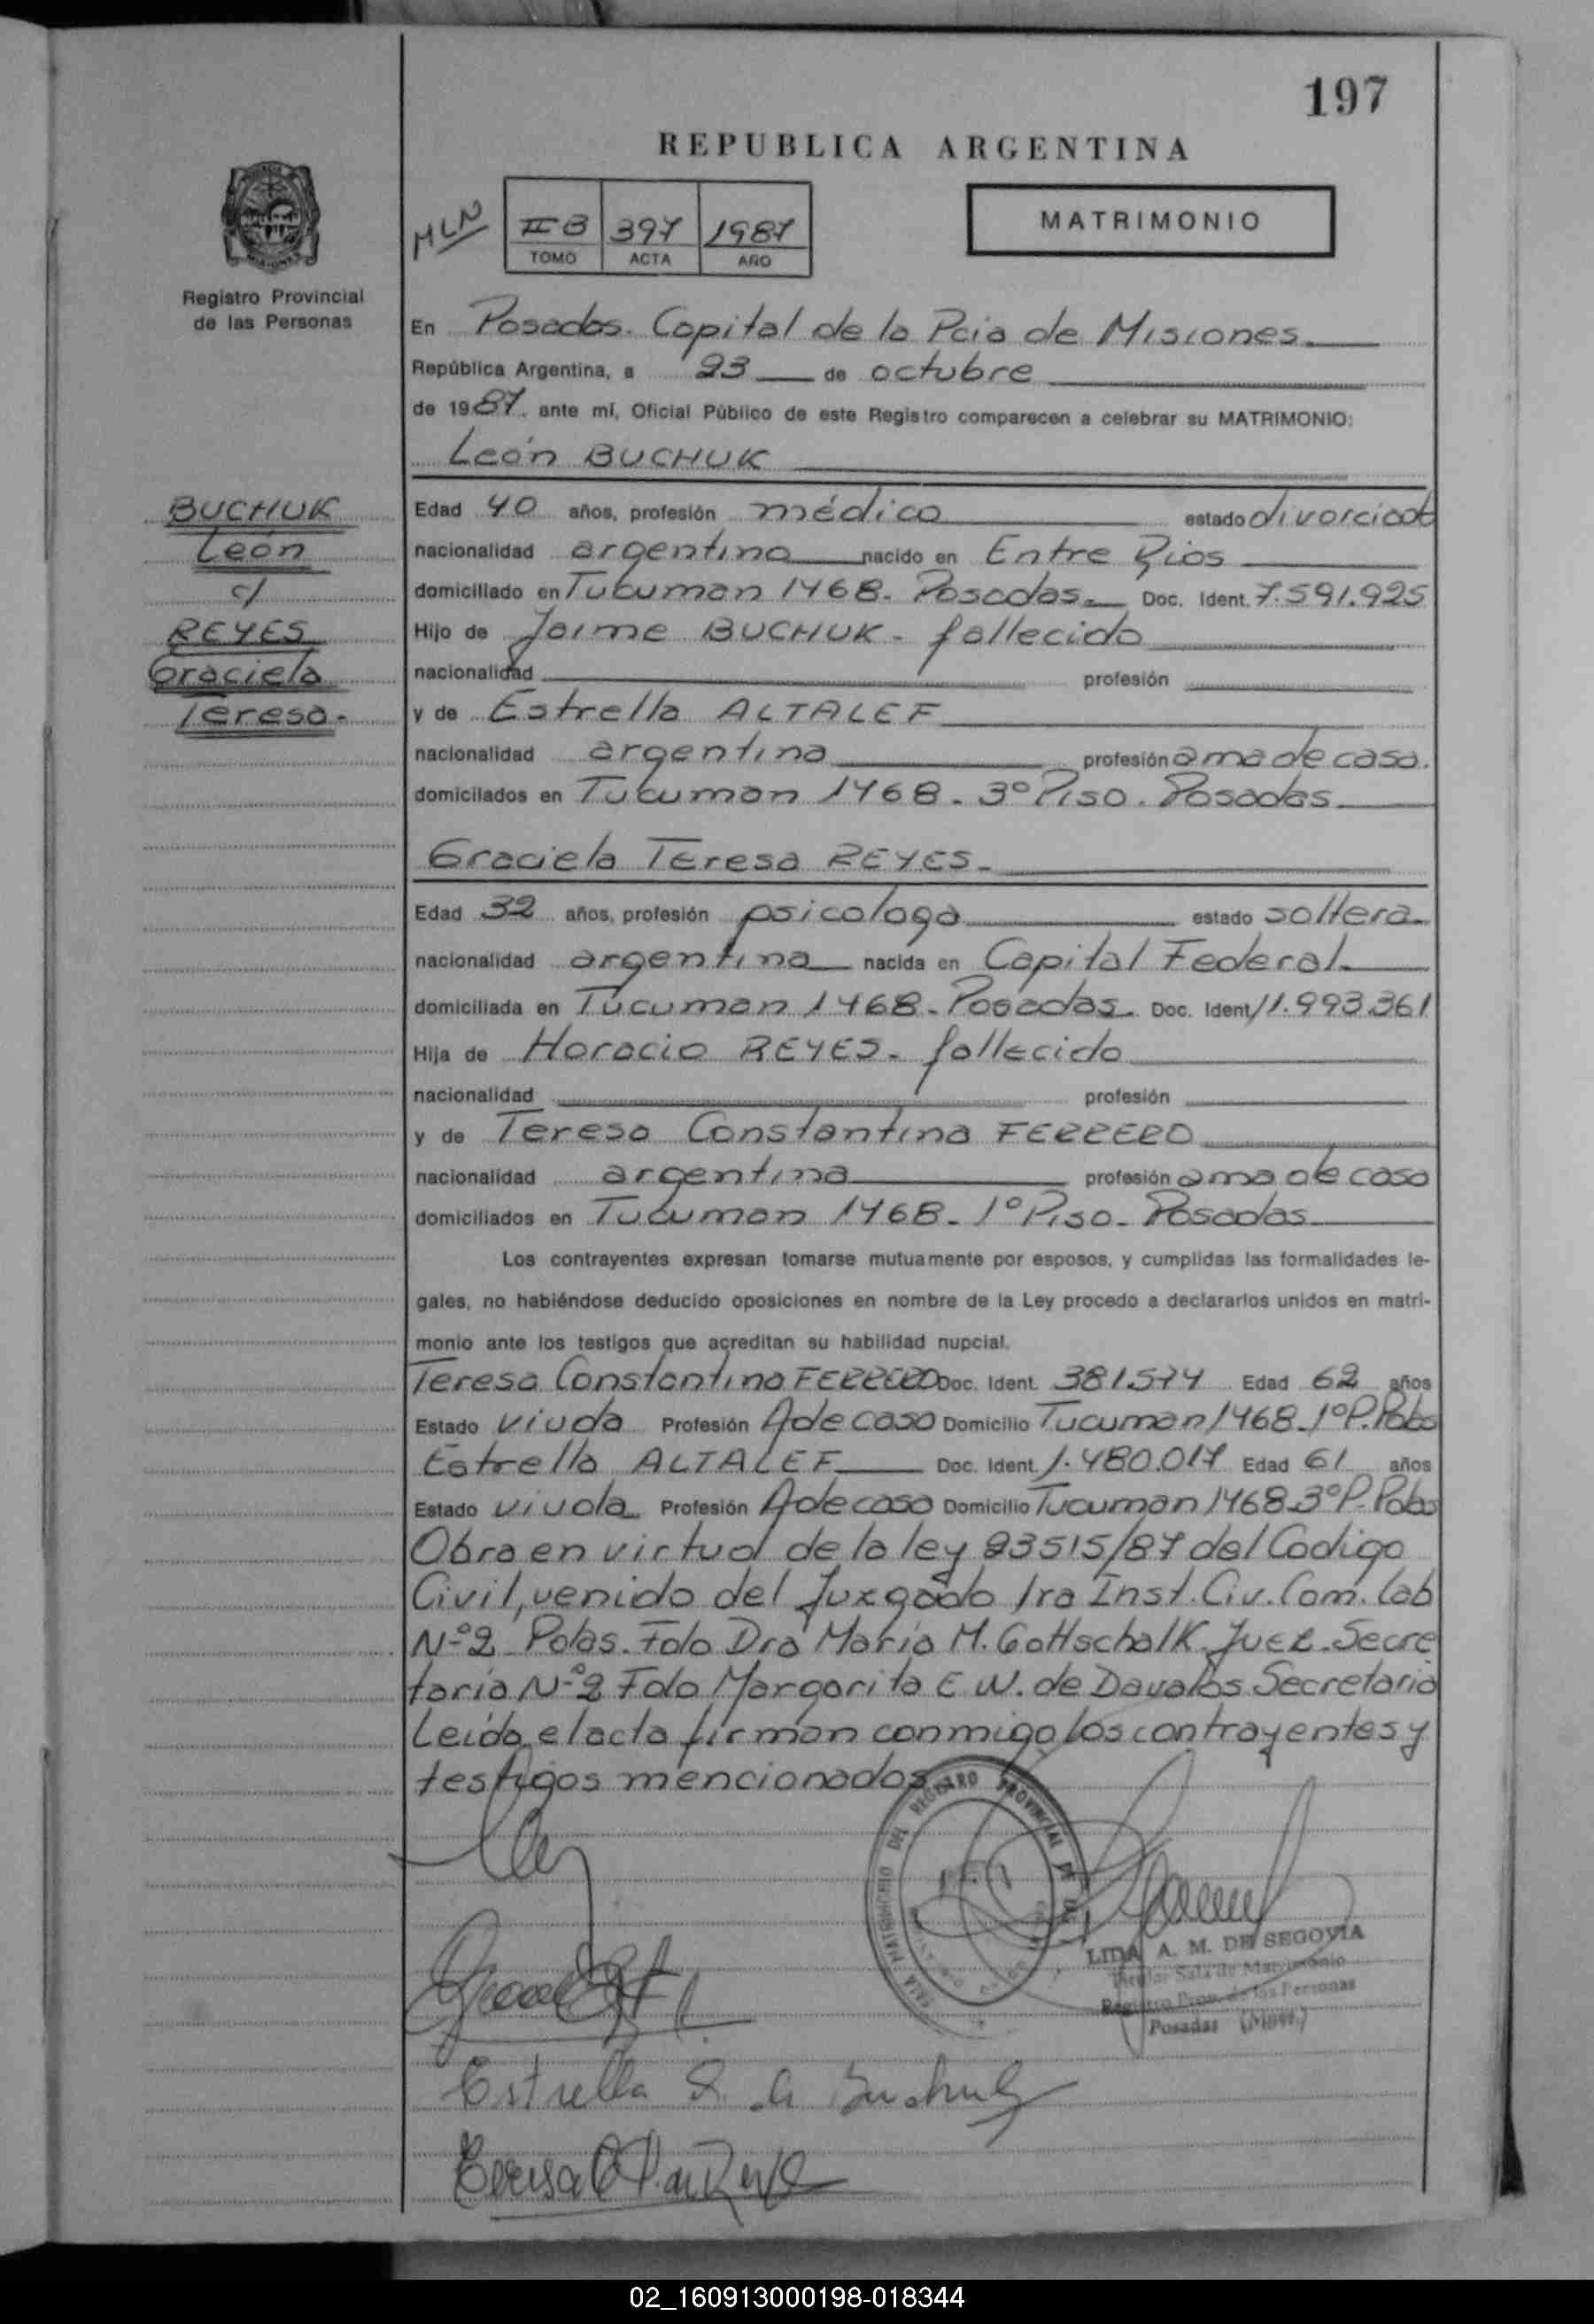 197
REPUBLICA ARGENTINA
MLN
II B 397 1987
TOMO ACTA AÑO
MATRIMONIO
Registro Provincial
de las Personas
En Posadas. Capital de la Pcia de Misiones
República Argentina, a 23 de octubre
de 1987. ante mí, Oficial Público de este Registro comparecen a celebrar su MATRIMONIO:
León BUCHUK
BUCHUK
León
c/
REYES
Graciela
Teresa.
Edad 40 años, profesión médico estado divorciado
nacionalidad argentino nacido en Entre Rios
domiciliado en Tucuman 1468. Posadas. Doc. Ident. 7.591.925
Hijo de Jaime BUCHUK - fallecido
nacionalidad profesión
y de Estrella ALTALEF
nacionalidad argentina profesión ama de casa.
domicilados en Tucuman 1468. 3° Piso. Posadas
Graciela Teresa REYES.
Edad 32 años, profesión psicologa estado soltera
nacionalidad argentina nacida en Capital Federal
domiciliada en Tucuman 1468. Posadas. Doc. Ident. 11.993.361
Hija de Horacio REYES. fallecido
nacionalidad profesión
y de Teresa Constantina FERRERO
nacionalidad argentina profesión ama de casa
domiciliados en Tucuman 1468. 1° Piso. Posadas
Los contrayentes expresan tomarse mutuamente por esposos, y cumplidas las formalidades le-
gales, no habiéndose deducido oposiciones en nombre de la Ley procedo a declararlos unidos en matri-
monio ante los testigos que acreditan su habilidad nupcial.
Teresa Constantina FERRERO Doc. Ident. 381.574 Edad 62 años
Estado viuda Profesión A de casa Domicilio Tucuman 1468. 1° P. Pdas
Estrella ALTALEF Doc. Ident. 1.480.017 Edad 61 años
Estado viuda Profesión A de casa Domicilio Tucuman 1468 3° P. Pdas
Obra en virtud de la ley 23515/87 del Codigo
Civil, venido del Juzgado 1ra Inst. Civ. Com. Lab
N° 2 Pdas. Fdo Dra Maria M. Gottschalk. Juez. Secre
taria N° 2 Fdo Margarita E W. de Davalos Secretaria
Leída el acta firman conmigo los contrayentes y
testigos mencionados
LIDA A. M. DE SEGOVIA
Titular Sala de Matrimonio
Registro Prov. de las Personas
Posadas (Mnes.)
Estrella de Buchuk
Teresa
02_160913000198-018344